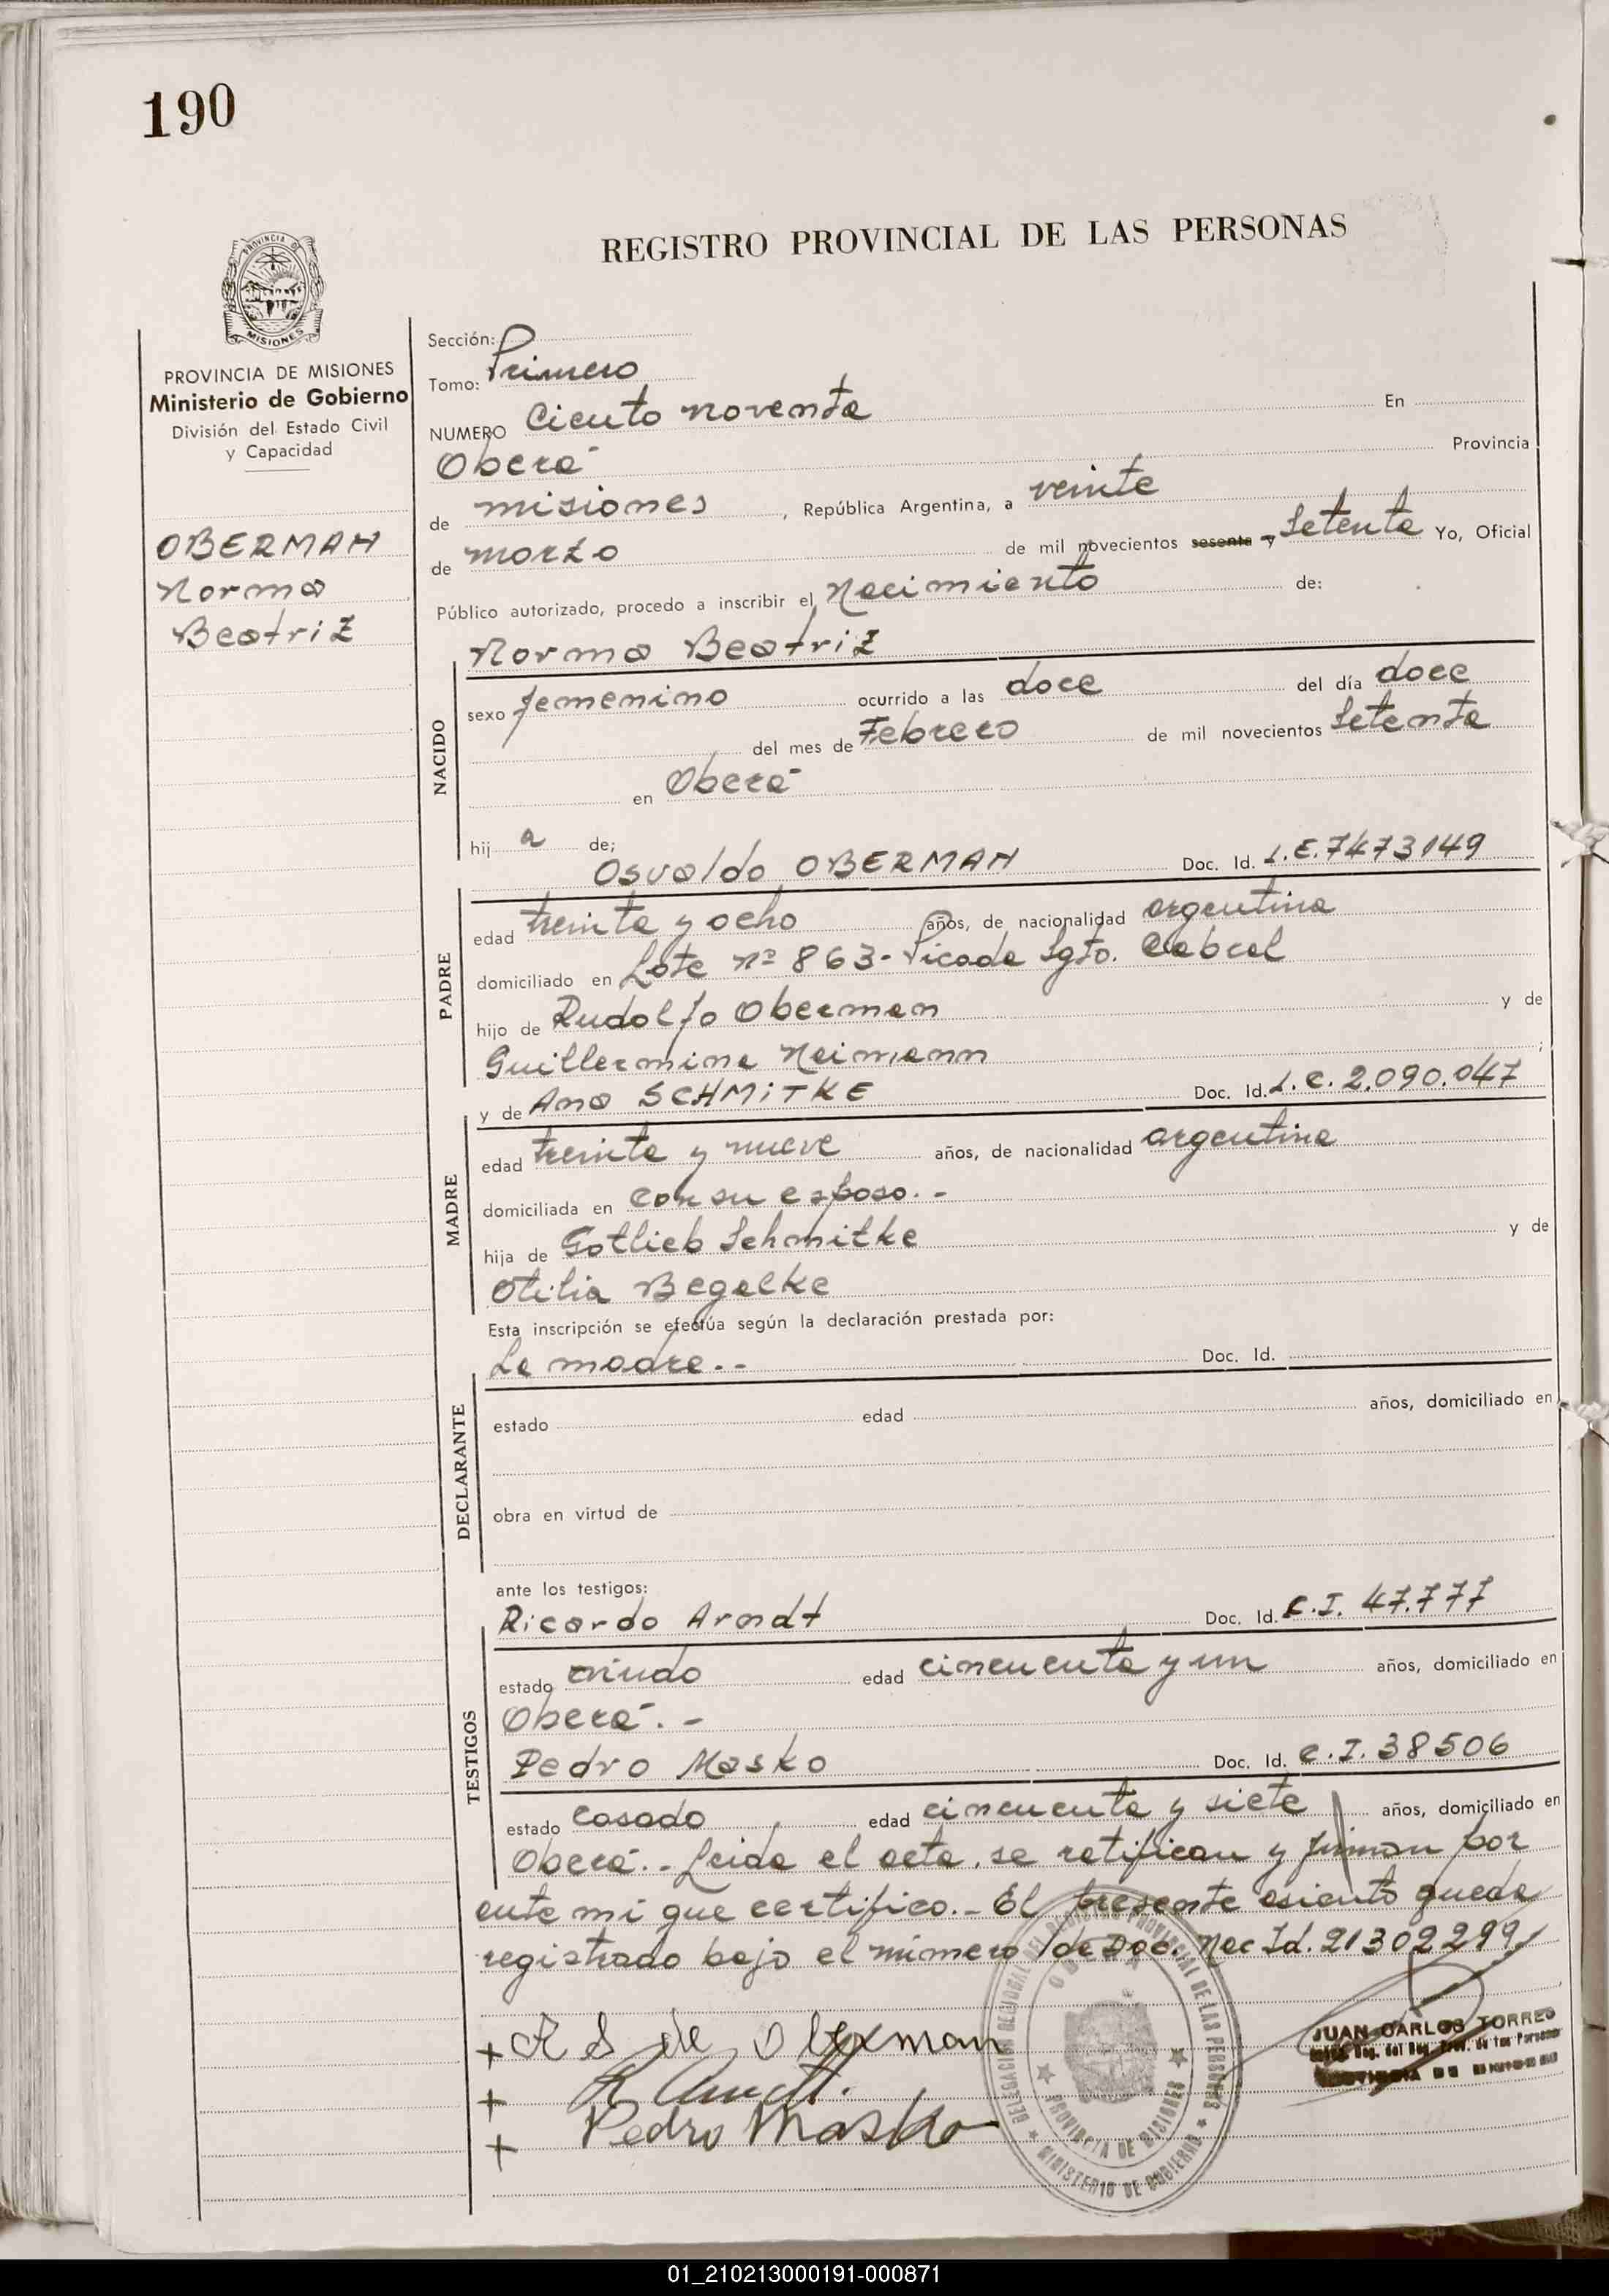 190
REGISTRO PROVINCIAL DE LAS PERSONAS
PROVINCIA DE
MISIONES
PROVINCIA DE MISIONES
Ministerio de Gobierno
División del Estado Civil
y Capacidad
OBERMAN
Norma
Beatriz
Sección:
Tomo: Primero
NUMERO Ciento noventa En
Oberá
Provincia
de misiones, República Argentina, a veinte
de marzo de mil novecientos sesenta y setenta Yo, Oficial
Público autorizado, procedo a inscribir el Nacimiento de:
Norma Beatriz
NACIDO
sexo femenino ocurrido a las doce del día doce
del mes de Febrero de mil novecientos setenta
en Oberá
hij a de;
Osvaldo OBERMAN Doc. Id. L.E. 7473149
PADRE
edad treinta y ocho años, de nacionalidad argentina
domiciliado en Lote nº 863- Picada Sgto. Cabral
hijo de Rudolfo Oberman y de
Guillermina Neimann;
y de Ana SCHMiTKE Doc. Id. L.C. 2.090.047
MADRE
edad treinta y nueve años, de nacionalidad argentina
domiciliada en con su esposo.-
hija de Gotlieb Schmitke y de
Otilia Begalke
Esta inscripción se efectúa según la declaración prestada por:
La madre.-- Doc. Id.
DECLARANTE
estado edad años, domiciliado en
obra en virtud de
ante los testigos:
Ricardo Arndt Doc. Id. C.I. 47.777
TESTIGOS
estado viudo edad cincuenta y un años, domiciliado en
Oberá.-
Pedro Masko Doc. Id. C.I. 38506
estado casado edad cincuenta y siete años, domiciliado en
Oberá.- Leida el acta, se ratifican y firman por
ante mi que certifico.- El presente asiento queda
registrado bajo el número de Doc. Nac Id. 21302299
A S de Oberman
R Arndt.
Pedro Masko
DELEGACION REGIONAL DEL REGISTRO PROVINCIAL DE LAS PERSONAS
OBERA
PROVINCIA DE MISIONES
MINISTERIO DE GOBIERNO
JUAN CARLOS TORRES
Reg. del Reg. Prov. de las Personas
PROVINCIA DE MISIONES
01_210213000191-000871